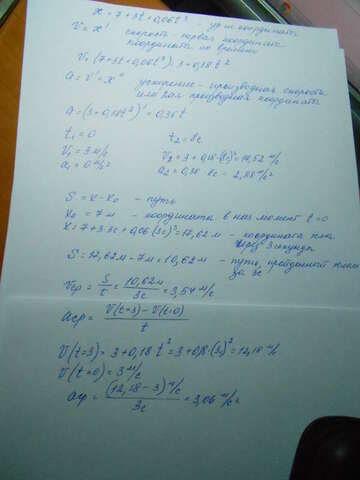 x = 7 + 3t + 0,06t³ - ур-ие координаты
V = x' скорость - первая
координаты по времени
V = (7+3t+0,06t³)' = 3+0,18t²
a = V' = x'' ускорение - производная скорости
или 2ая производная координаты
a = (3+0,18t²)' = 0,36t
t₁ = 0 t₂ = 8c
V₁ = 3 м/с V₂ = 3 + 0,18·(8)² = 14,52 м/с
a₁ = 0 м/с² a₂ = 0,36·8c = 2,88 м/с²
S = x - x₀ - путь
x₀ = 7 м - координата в нач момент t = 0
x = 7+3·3+0,06·(3c)³ = 17,62 м - координата
через 3 секунды
S = 17,62 м - 7 м = 10,62 м - путь, пройденный
за 3с
Vср = S/t = 10,62м/3c = 3,54 м/с
aср = V(t=3) - V(t=0)/t
V(t=3) = 3+0,18 t² = 3+0,18·(3c)² = 12,18 м/с
V(t=0) = 3 м/с
aср = (12,18-3) м/с/3c = 3,06 м/с²